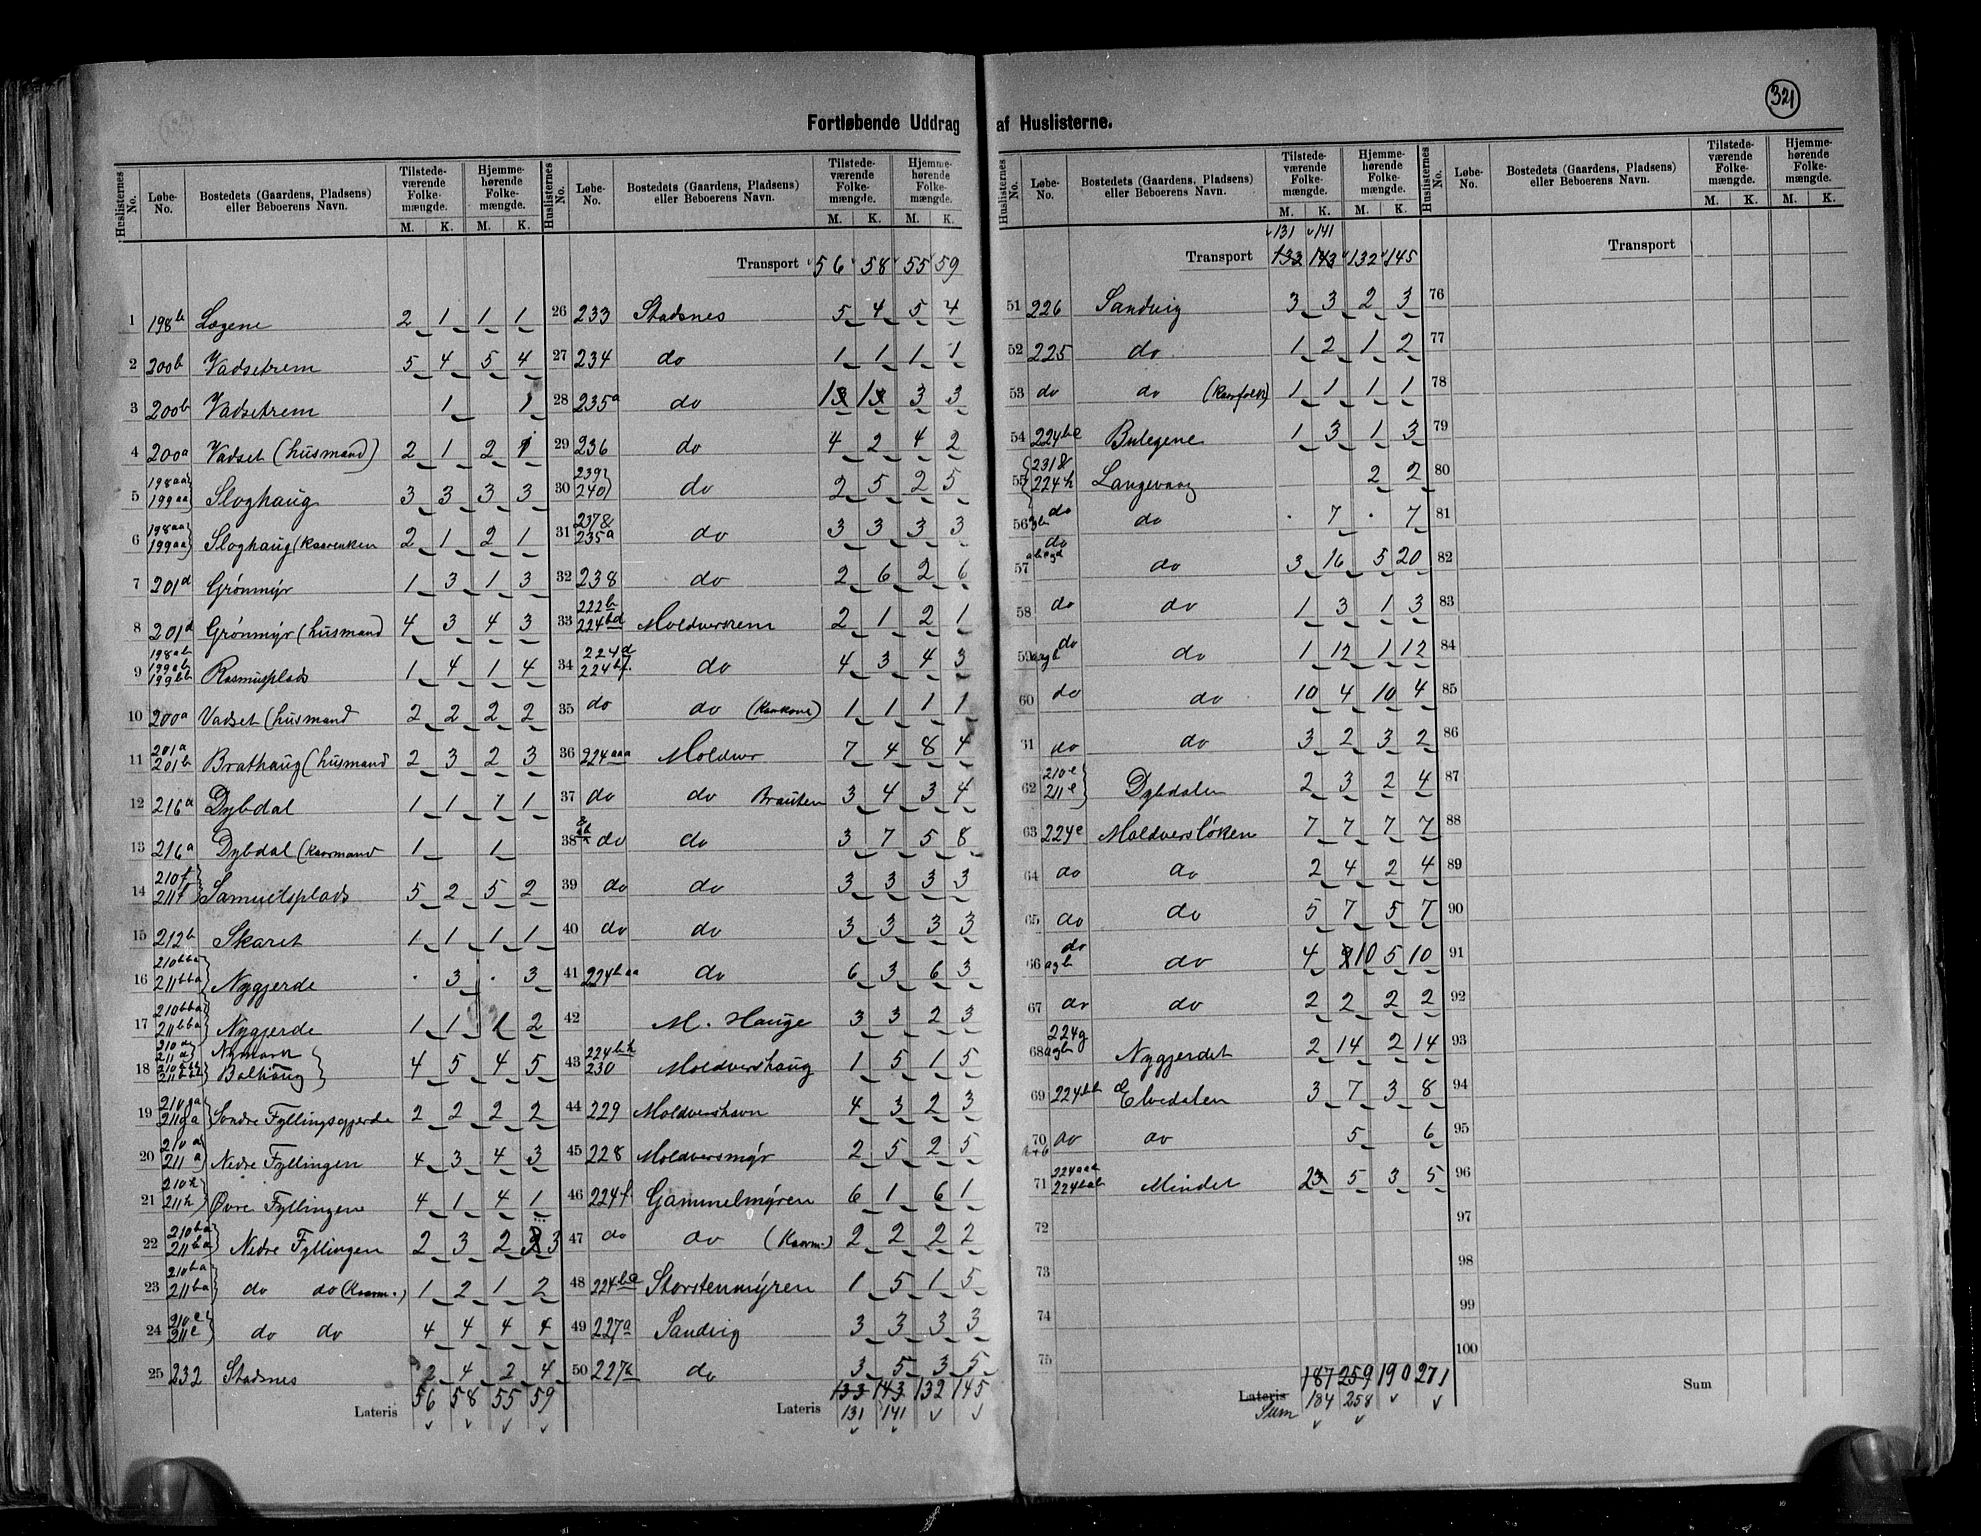 321
Fortløbende Uddrag af Huslisterne.
Huslisternes No. Løbe-No. Bostedets (Gaardens, Pladsens) eller Beboerens Navn. Tilstedeværende Folkemængde. M. K. Hjemmehørende Folkemængde. M. K.
1 198b Løgene 2 1 1 1
2 200b Vadsetrem 5 4 5 4
3 200b Vadsetrem 1 1
4 200a Vadset (husmand) 2 1 2 1
5 198aa 199aa Sloghaug 3 3 3 3
6 198aa 199aa Sloghaug (Kaarenken 2 1 2 1
7 201d Grönmyr 1 3 1 3
8 201d Grönmyr (husmand 4 3 4 3
9 198ab 199ab 199bb Rasmusplads 1 4 1 4
10 200a Vadset (husmand 2 2 2 2
11 201a 201b Brathaug (husmand 2 3 2 3
12 216a Dybdal 1 1 1 1
13 216a Dybdal (Kaarmand 1 1
14 210f 211f Samuelsplads 5 2 5 2
15 212b Skaret 1 1 1 1
16 210bba 211bba Nygjerde · 3 · 3
17 210bba 211bba Nygjerde 1 1 1 2
18 Balhaug 4 5 4 5
19 210ga 211ga Søndre Fyllingsgjerde 2 2 2 2
20 210a 211a Nedre Fyllingen 4 3 4 3
21 210h 211h Øvre Fyllingen 4 1 4 1
22 210ba 211ba Nedre Fyllingen 2 3 2 3
23 210ba 211ba do do (Kaarm.) 1 2 1 2
24 210e 211e do do 4 4 4 4
25 232 Stadsnes 2 4 2 4
Lateris 56 58 55 59
Huslisternes No. Løbe-No. Bostedets (Gaardens, Pladsens) eller Beboerens Navn. Tilstedeværende Folkemængde. M. K. Hjemmehørende Folkemængde. M. K.
Transport 56 58 55 59
26 233 Stadsnes 5 4 5 4
27 234 do 1 1 1 1
28 235a do 1 1 3 3
29 236 do 4 2 4 2
30 239 240 do 2 5 2 5
31 237 & 235a do 3 3 3 3
32 238 do 2 6 2 6
33 222b 224bd Moldversrem 2 1 2 1
34 224d 224bf do 4 3 4 3
35 do do (Kaarkone) 1 1 1 1
36 224aaa Moldver 7 4 8 4
37 do do Brauten 3 4 3 4
38 do do 3 7 5 8
39 do do 3 3 3 3
40 do do 3 3 3 3
41 224baa do 6 3 6 3
42 M. Hauge 3 3 2 3
43 224bh 230 Moldvershaug 1 5 1 5
44 229 Moldvershavn 4 3 2 3
45 228 Moldversmyr 2 5 2 5
46 224f Gammelmyren 6 1 6 1
47 do do (Kaarm.) 2 2 2 2
48 224be Storstenmyren 1 5 1 5
49 227a Sandvig 3 3 3 3
50 227b do 3 5 3 5
133 143 132 145
Lateris 131 141
Huslisternes No. Løbe-No. Bostedets (Gaardens, Pladsens) eller Beboerens Navn. Tilstedeværende Folkemængde. M. K. Hjemmehørende Folkemængde. M. K.
131 141
Transport 133 143 132 145
51 226 Sandvig 3 3 2 3
52 225 do 1 2 1 2
53 do do (Kaarfolk) 1 1 1 1
54 224be Bulegene 1 3 1 3
55 231 & 224h Langevaag 2 2
56 do do · 7 · 7
57 do do 3 16 5 20
58 do do 1 3 1 3
59 do do 1 12 1 12
60 do do 10 4 10 4
61 do do 3 2 3 2
62 210e 211e Dybdalen 2 3 2 4
63 224e Moldversløken 7 7 7 7
64 do do 2 4 2 4
65 do do 5 7 5 7
66 do agb do 4 10 5 10
67 do do 2 2 2 2
68 224g agb Nygjerdet 2 14 2 14
69 224bb Elvedalen 3 7 3 8
70 do do 5 6
71 224aaa 224bab Mindet 2 5 3 5
72
73
74
75
187 259 190 271
Lateris Sum 184 258
Huslisternes No. Løbe-No. Bostedets (Gaardens, Pladsens) eller Beboerens Navn. Tilstedeværende Folkemængde. M. K. Hjemmehørende Folkemængde. M. K.
Transport
76
77
78
79
80
81
82
83
84
85
86
87
88
89
90
91
92
93
94
95
96
97
98
99
100
Sum